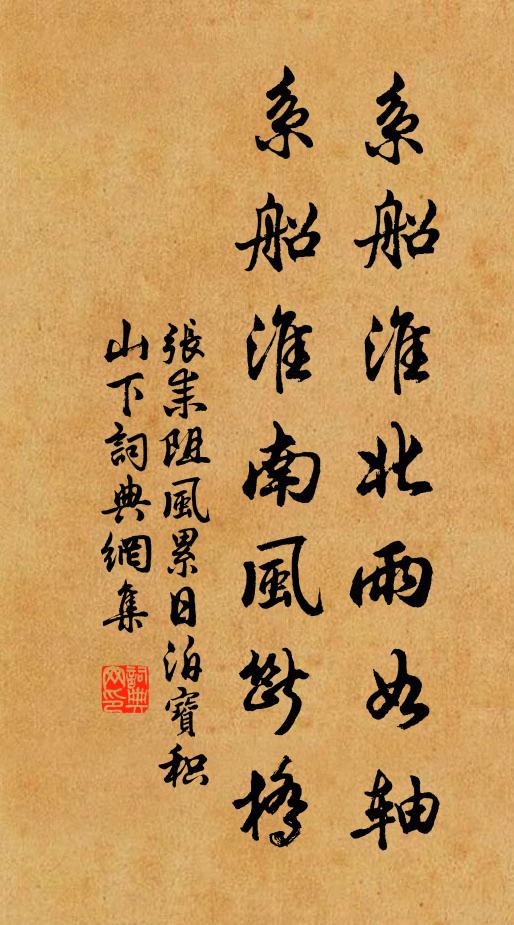 系船淮北雨如轴
系船淮南風斷橋
張耒阻風累日泊寶积
山下詞典網集
詞典網印